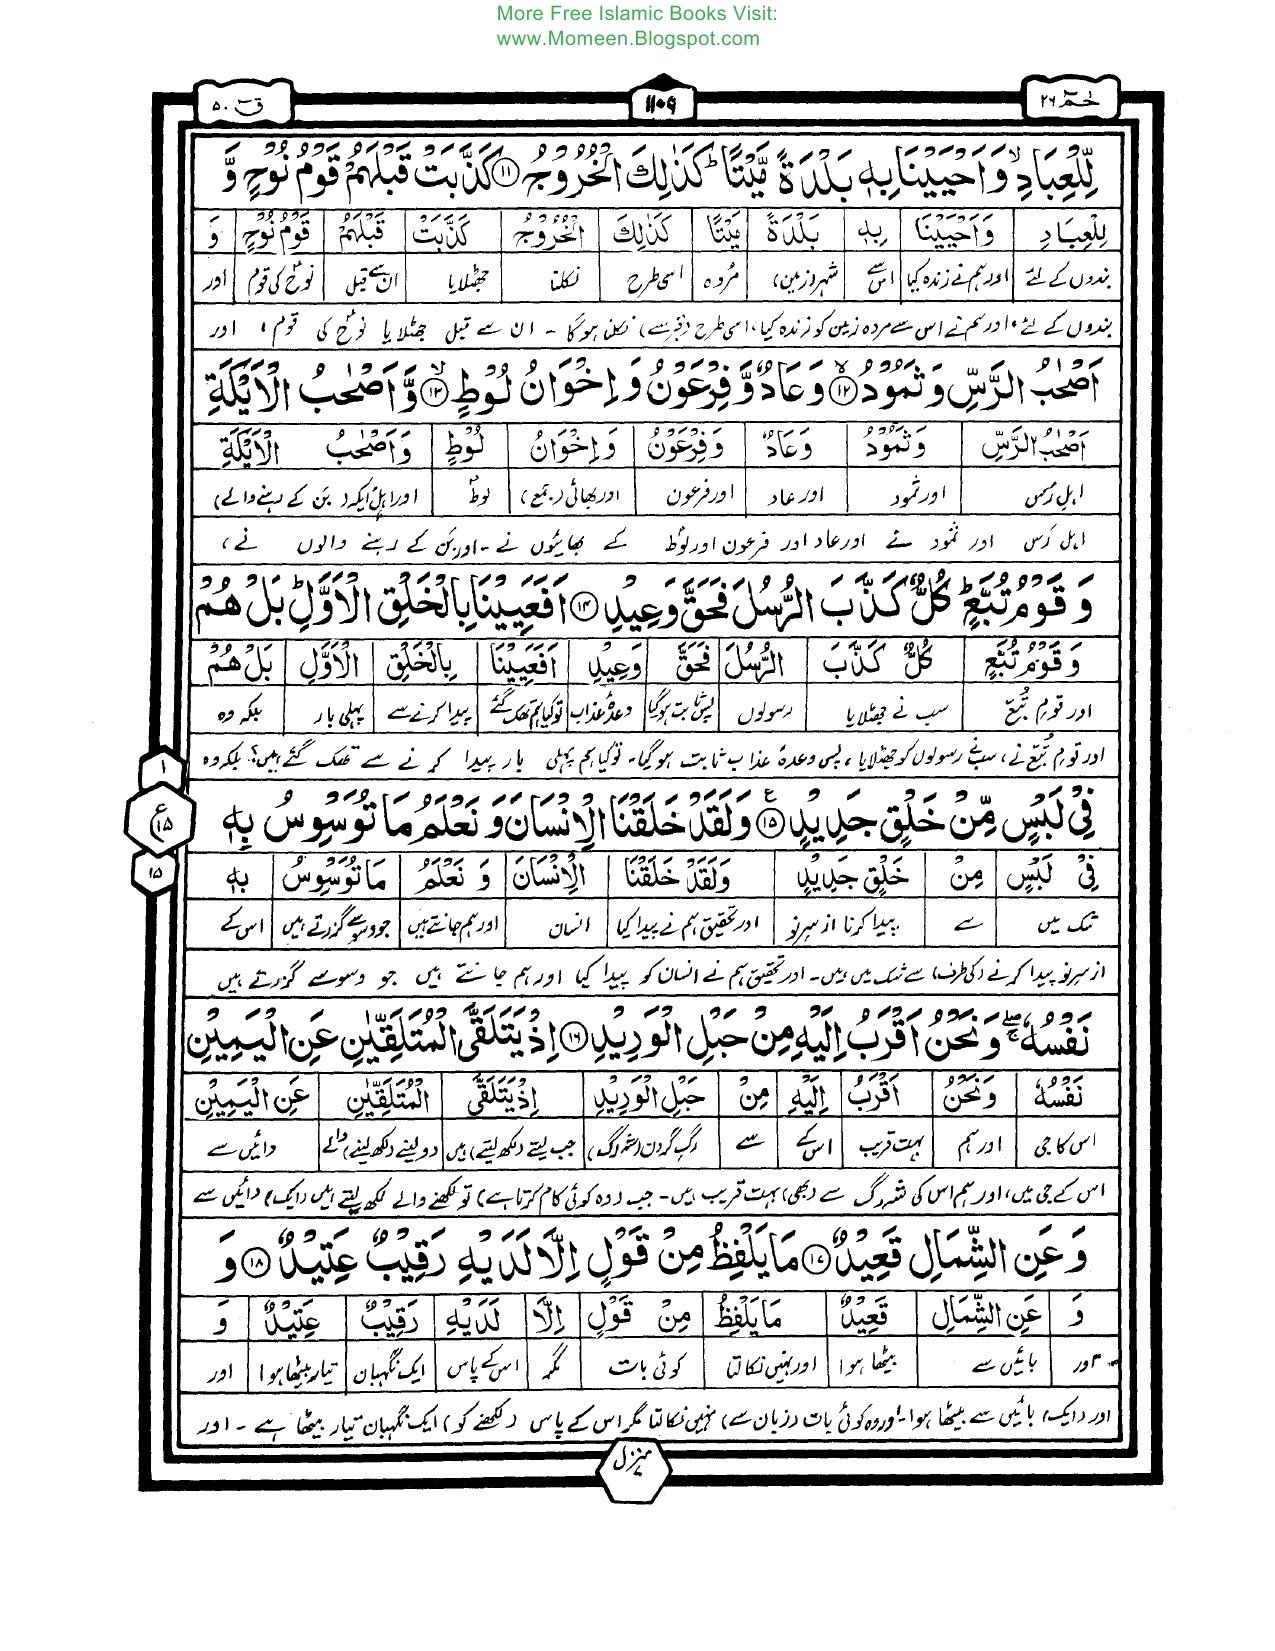 More Free Islamic Books Visit:
www.Momeen.Blogspot.com
حٰمٓ ٢٦
١١٠٩
قٓ ٥٠
لِّلْعِبَادِ ۙ وَاَحْيَيْنَا بِهٖ بَلْدَةً مَّيْتًا ؕ كَذٰلِكَ الْخُرُوْجُ ﴿١١﴾ كَذَّبَتْ قَبْلَهُمْ قَوْمُ نُوْحٍ وَّ
لِّلْعِبَادِ وَاَحْيَيْنَا بِهٖ بَلْدَةً مَّيْتًا كَذٰلِكَ الْخُرُوْجُ كَذَّبَتْ قَبْلَهُمْ قَوْمُ نُوْحٍ وَّ
بندوں کے لئے اور ہم نے زندہ کیا اس سے شہر (زمین) مُردہ اسی طرح نکلنا جھٹلایا ان سے قبل نوحؑ کی قوم اور
بندوں کے لئے، اور ہم نے اس سے مردہ زمین کو زندہ کیا، اسی طرح (قبر سے) نکلنا ہوگا - ان سے قبل جھٹلایا نوحؑ کی قوم، اور
اَصْحٰبُ الرَّسِّ وَثَمُوْدُ ۙ﴿١٢﴾ وَعَادٌ وَّفِرْعَوْنُ وَاِخْوَانُ لُوْطٍ ۙ﴿١٣﴾ وَّاَصْحٰبُ الْاَيْكَةِ
اَصْحٰبُ الرَّسِّ وَثَمُوْدُ وَعَادٌ وَفِرْعَوْنُ وَاِخْوَانُ لُوْطٍ وَاَصْحٰبُ الْاَيْكَةِ
اہلِ رس اور ثمود اور عاد اور فرعون اور بھائی (جمع) لوطؑ اور اہلِ ایکہ (بن کے رہنے والے)
اہل رَس اور ثمود نے اور عاد اور فرعون اور لوطؑ کے بھائیوں نے - اور بَن کے رہنے والوں نے،
وَقَوْمُ تُبَّعٍ ؕ كُلٌّ كَذَّبَ الرُّسُلَ فَحَقَّ وَعِيْدِ ﴿١٤﴾ اَفَعَيِيْنَا بِالْخَلْقِ الْاَوَّلِ ؕ بَلْ هُمْ
وَقَوْمُ تُبَّعٍ كُلٌّ كَذَّبَ الرُّسُلَ فَحَقَّ وَعِيْدِ اَفَعَيِيْنَا بِالْخَلْقِ الْاَوَّلِ بَلْ هُمْ
اور قومِ تُبَّع سب نے جھٹلایا رسولوں پس ثابت ہوگیا وعدۂ عذاب تو کیا ہم تھک گئے پیدا کرنے سے پہلی بار بلکہ وہ
اور قومِ تُبَّع نے، سب نے رسولوں کو جھٹلایا، پس وعدۂ عذاب ثابت ہوگیا - تو کیا ہم پہلی بار پیدا کرنے سے تھک گئے ہیں؟ بلکہ وہ
١
ع
١٥
١٥
فِيْ لَبْسٍ مِّنْ خَلْقٍ جَدِيْدٍ ﴿١٥﴾ وَلَقَدْ خَلَقْنَا الْاِنْسَانَ وَنَعْلَمُ مَا تُوَسْوِسُ بِهٖ
فِيْ لَبْسٍ مِّنْ خَلْقٍ جَدِيْدٍ وَلَقَدْ خَلَقْنَا الْاِنْسَانَ وَنَعْلَمُ مَا تُوَسْوِسُ بِهٖ
شک میں سے پیدا کرنا از سرِ نو اور تحقیق ہم نے پیدا کیا انسان اور ہم جانتے ہیں جو وسوسے گزرتے ہیں اس کے
از سرِ نو پیدا کرنے (کی طرف) سے شک میں ہیں - اور تحقیق ہم نے انسان کو پیدا کیا اور ہم جانتے ہیں جو وسوسے گزرتے ہیں
نَفْسُهٗ ۚۖ وَنَحْنُ اَقْرَبُ اِلَيْهِ مِنْ حَبْلِ الْوَرِيْدِ ﴿١٦﴾ اِذْ يَتَلَقَّى الْمُتَلَقِّيٰنِ عَنِ الْيَمِيْنِ
نَفْسُهٗ وَنَحْنُ اَقْرَبُ اِلَيْهِ مِنْ حَبْلِ الْوَرِيْدِ اِذْ يَتَلَقَّى الْمُتَلَقِّيٰنِ عَنِ الْيَمِيْنِ
اس کا جی اور ہم بہت قریب اس کے سے رگِ گردن (شہ رگ) جب لیتے (لکھ لیتے) ہیں دو لینے (لکھ لینے) والے دائیں سے
اس کے جی میں، اور ہم اس کی شہ رگ سے (بھی) بہت قریب ہیں - جب (وہ کوئی کام کرتا ہے) تو لکھنے والے لکھ لیتے ہیں (ایک) دائیں سے
وَعَنِ الشِّمَالِ قَعِيْدٌ ﴿١٧﴾ مَا يَلْفِظُ مِنْ قَوْلٍ اِلَّا لَدَيْهِ رَقِيْبٌ عَتِيْدٌ ﴿١٨﴾ وَ
وَ عَنِ الشِّمَالِ قَعِيْدٌ مَا يَلْفِظُ مِنْ قَوْلٍ اِلَّا لَدَيْهِ رَقِيْبٌ عَتِيْدٌ وَ
اور بائیں سے بیٹھا ہوا اور نہیں نکالتا کوئی بات مگر اس کے پاس ایک نگہبان تیار بیٹھا ہوا اور
اور (ایک) بائیں سے بیٹھا ہوا - اور وہ کوئی بات (زبان سے) نہیں نکالتا مگر اس کے پاس (لکھنے کو) ایک نگہبان تیار بیٹھا ہے - اور
منزل ٧